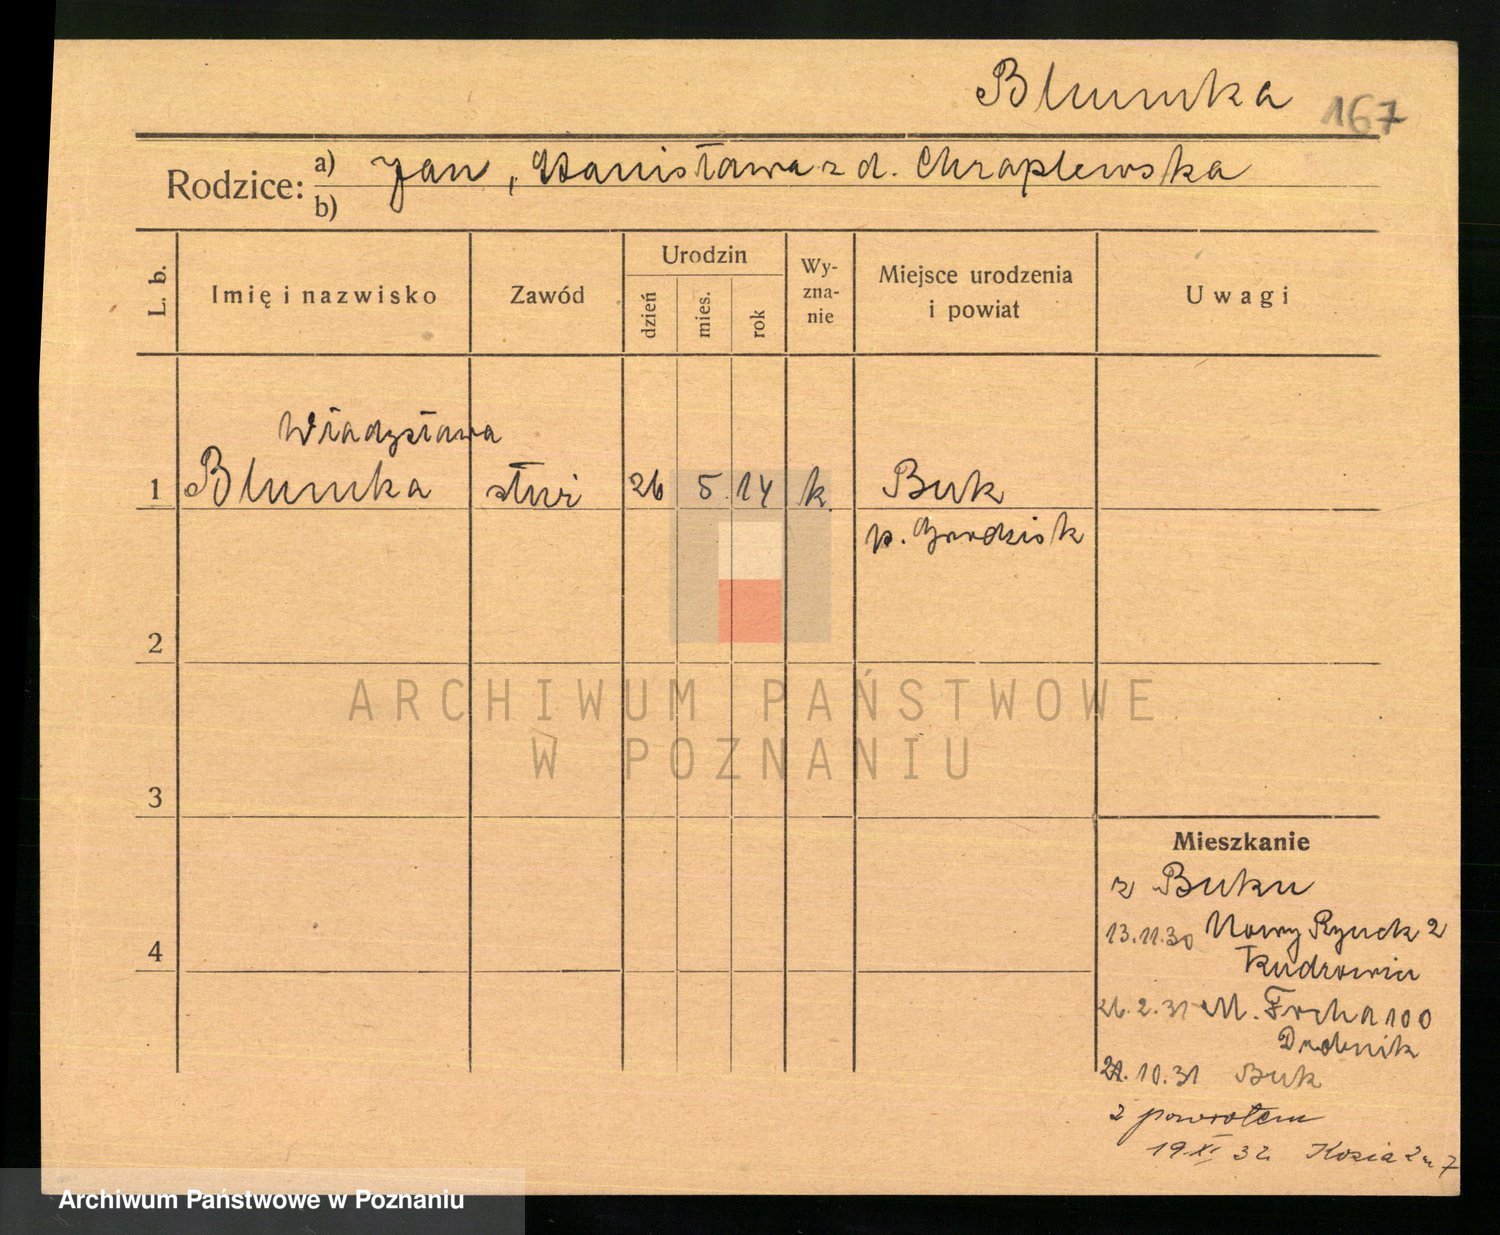 Blumka 167
Rodzice: a) b) Jan, Stanisława z d. Chraplewska
L. b.
Imię i nazwisko
Zawód
Urodzin
dzień
mies.
rok
Wy-
zna-
nie
Miejsce urodzenia
i powiat
Uwagi
Władysława
1 Blumka służ 26 5. 14 k. Buk
p. Grodzisk
2
ARCHIWUM PAŃSTWOWE
W POZNANIU
3
Mieszkanie
z Buku
13.11.30 Nowy Rynek 2
4
26.2.31 M. Focha 100
Drobnik
21.10.31 Buk
z powrotem
19 XI 32 Kozia 2 m 7
Archiwum Państwowe w Poznaniu